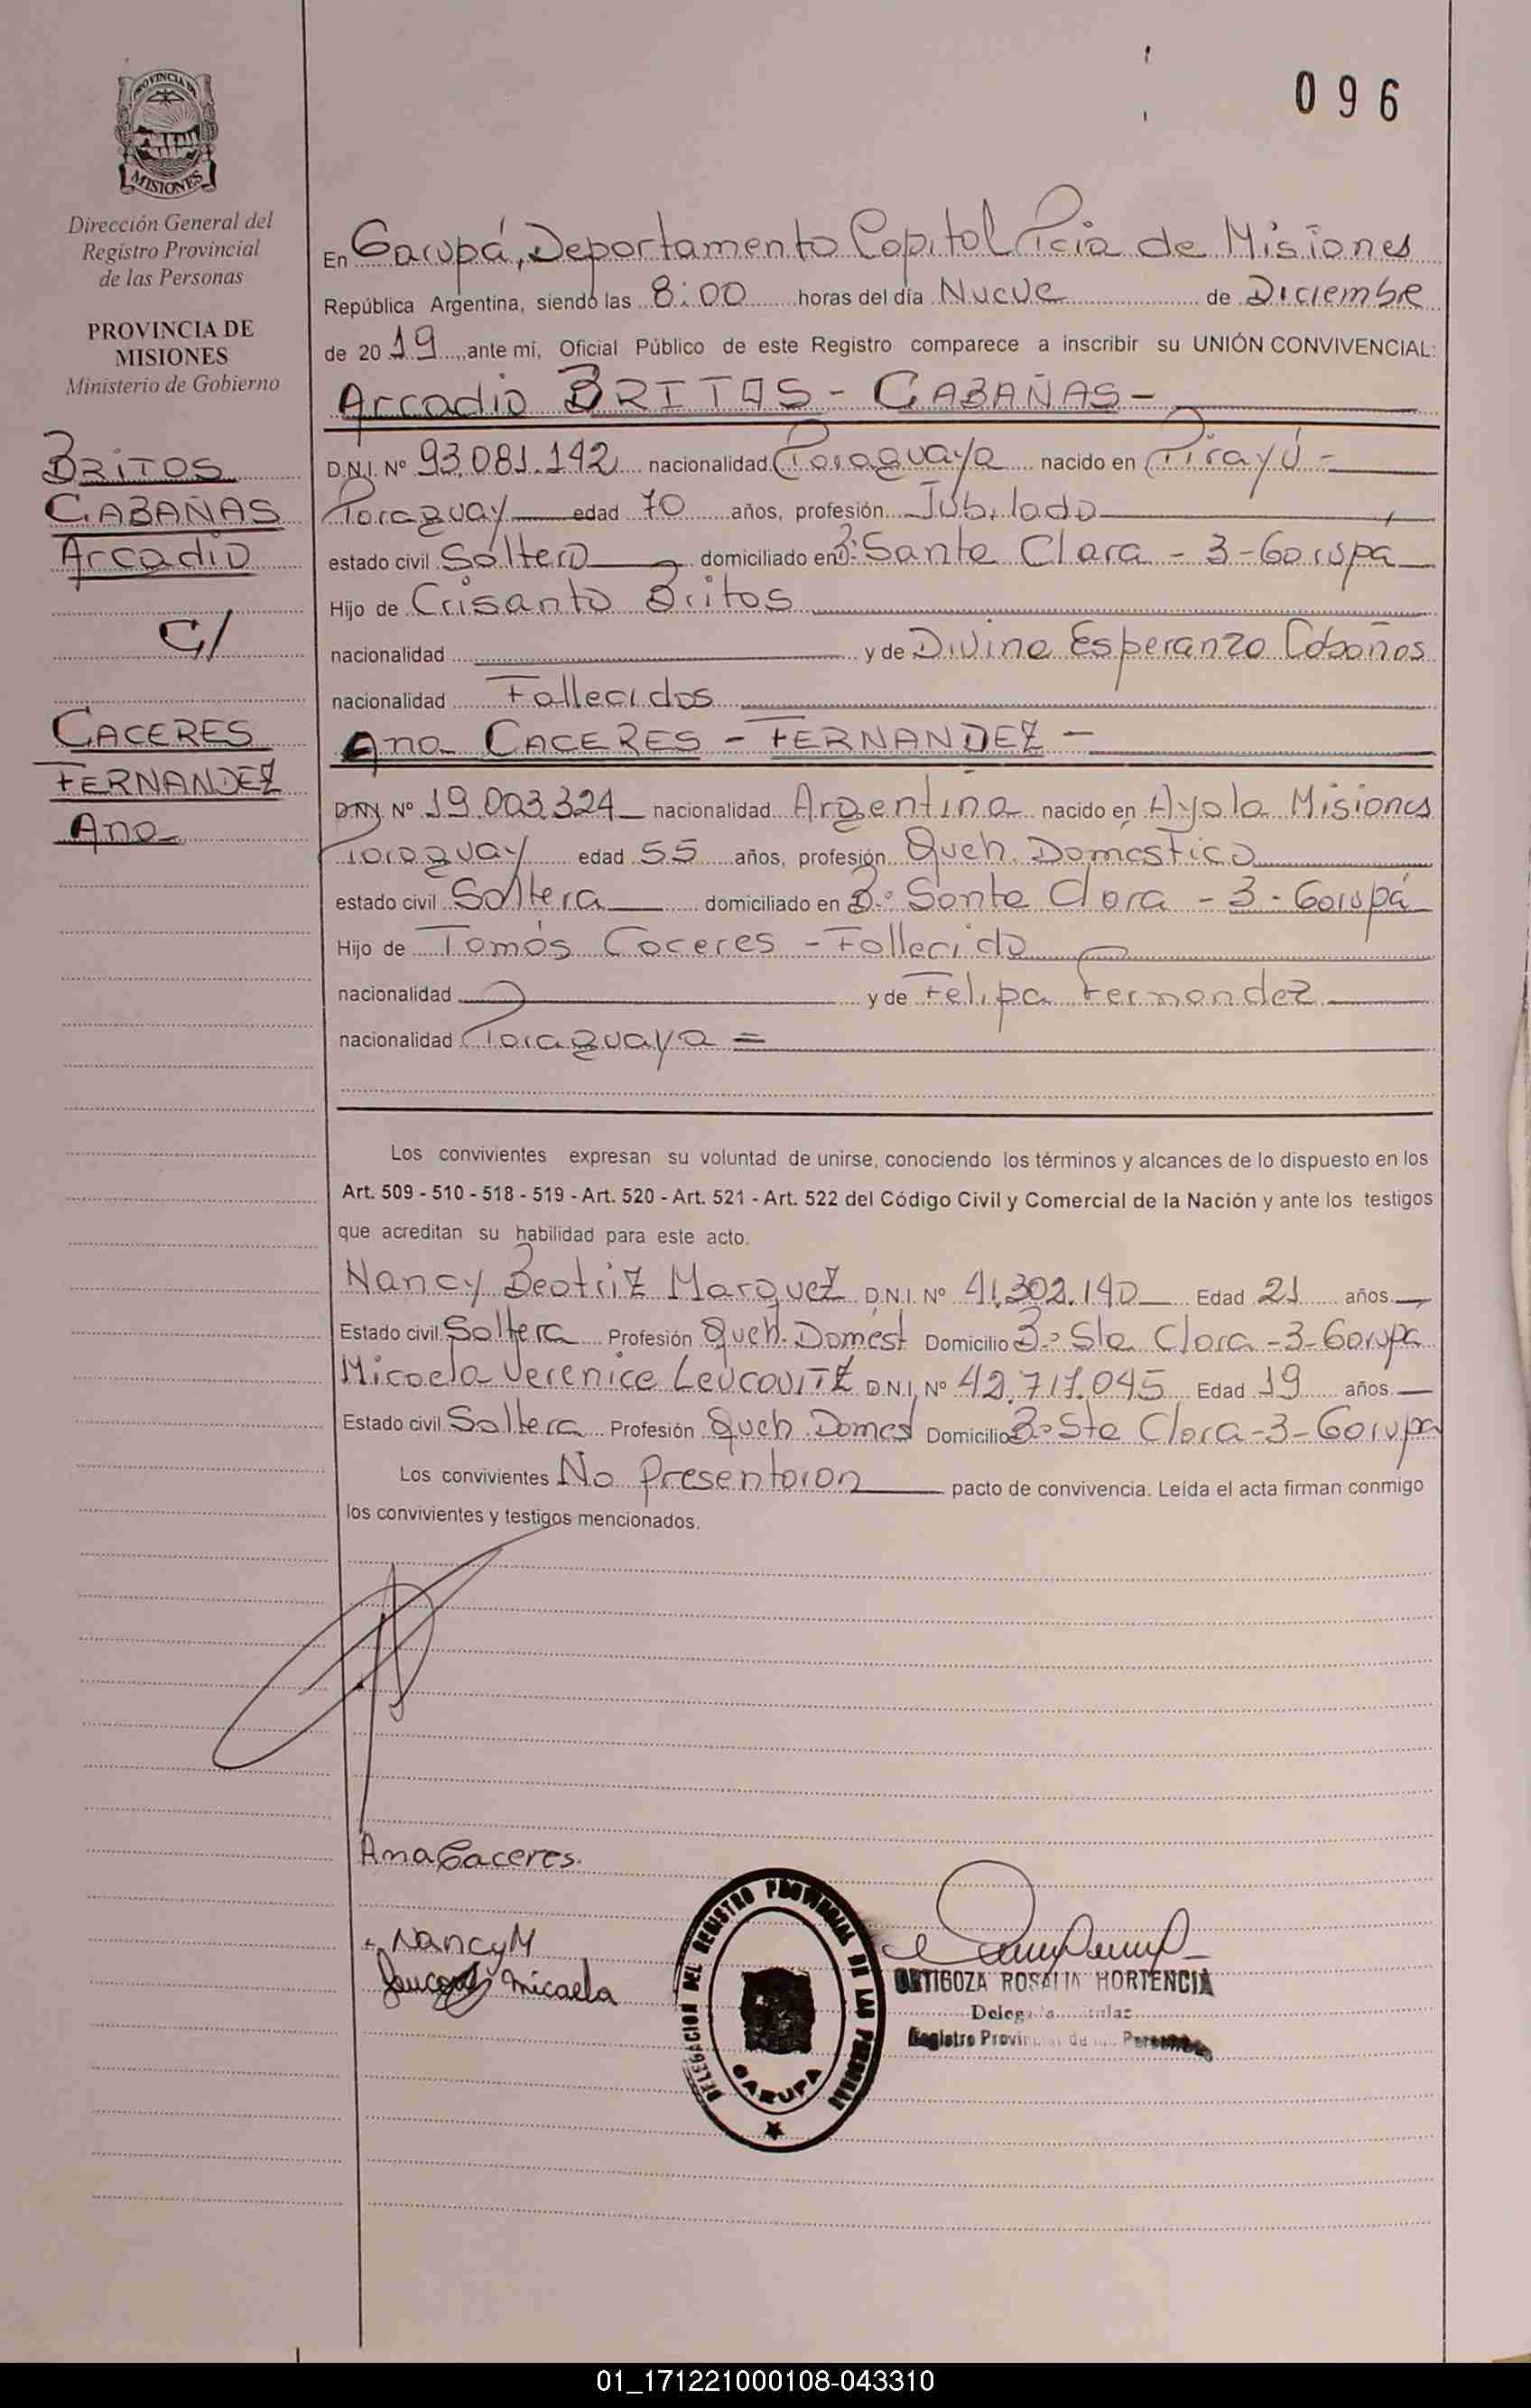 096
PROVINCIA DE
MISIONES
Dirección General del
Registro Provincial
de las Personas
PROVINCIA DE
MISIONES
Ministerio de Gobierno
BRITOS
CABAÑAS
Arcadio
C/
CACERES
FERNANDEZ
Ana
En Garupá, Departamento Capital Pcia de Misiones
República Argentina, siendo las 8:00 horas del día Nueve de Diciembre
de 2019, ante mí, Oficial Público de este Registro comparece a inscribir su UNIÓN CONVIVENCIAL:
Arcadio BRITOS - CABAÑAS -
D.N.I. Nº 93.081.142 nacionalidad Paraguaya nacido en Pirayú -
Paraguay edad 70 años, profesión Jubilado
estado civil Soltero domiciliado en Bº Santa Clara - 3 - Garupa
Hijo de Crisanto Britos
nacionalidad y de Divina Esperanza Cabañas
nacionalidad Fallecidos
Ana CACERES - FERNANDEZ -
D.N.I. Nº 19.003.324 nacionalidad Argentina nacido en Ayola Misiones
Paraguay edad 55 años, profesión Queh. Doméstico
estado civil Soltera domiciliado en Bº Santa Clara - 3 - Garupá
Hijo de Tomás Caceres - Fallecido
nacionalidad y de Felipa Fernandez
nacionalidad Paraguaya =
Los convivientes expresan su voluntad de unirse, conociendo los términos y alcances de lo dispuesto en los
Art. 509 - 510 - 518 - 519 - Art. 520 - Art. 521 - Art. 522 del Código Civil y Comercial de la Nación y ante los testigos
que acreditan su habilidad para este acto.
Nancy Beatriz Marquez D.N.I. Nº 41.302.140 Edad 21 años
Estado civil Soltera Profesión Queh. Domést Domicilio Bº Sta Clara - 3 - Garupa
Micaela Verenice Leucovitz D.N.I. Nº 42.717.045 Edad 19 años
Estado civil Soltera Profesión Queh Domes Domicilio Bº Sta Clara - 3 - Garupa
Los convivientes No Presentaron pacto de convivencia. Leída el acta firman conmigo
los convivientes y testigos mencionados.
Ana Caceres.
Nancy M
micaela
DELEGACION DEL REGISTRO PROVINCIAL DE LAS PERSONAS
GARUPA
ORTIGOZA ROSALIA HORTENCIA
Registro Provincial de las Personas
01_171221000108-043310